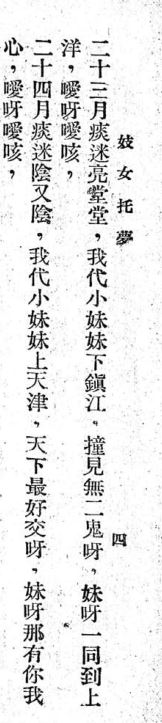 妓女托夢　四
二十三月痰迷亮堂堂，我代小妹妹下鎭江，撞見無二鬼呀，妹呀一同到上
洋，噯呀噯咳，
二十四月痰迷陰又陰，我代小妹妹上天津，天下最好交呀，妹呀那有你我
心，噯呀噯咳，